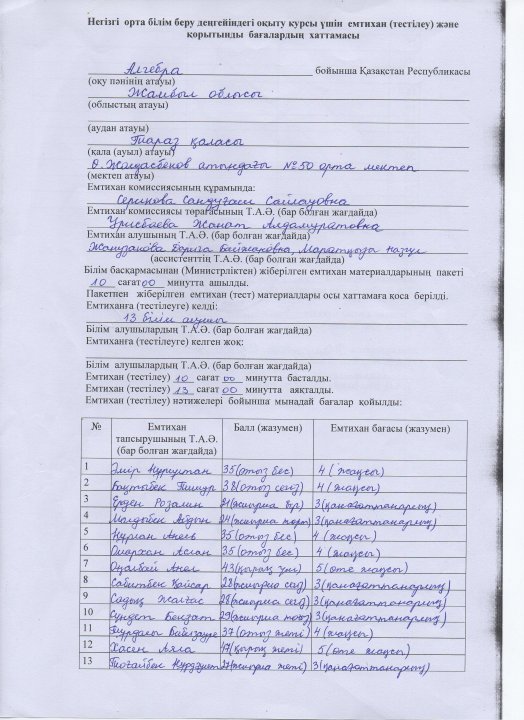 Негізгі орта білім беру деңгейіндегі оқыту курсы үшін емтихан (тестілеу) және
қорытынды бағалардың хаттамасы
Алгебра бойынша Қазақстан Республикасы
(оқу пәнінің атауы)
Жамбыл облысы
(облыстың атауы)
(аудан атауы)
Тараз қаласы
(қала (ауыл) атауы)
Ө. Жолдасбеков атындағы №50 орта мектеп
(мектеп атауы)
Емтихан комиссиясының құрамында:
Серикова Сандуғаш Сайлауовна
Емтихан комиссиясы төрағасының Т.А.Ә. (бар болған жағдайда)
Урисбаева Жанат Алдамуратовна
Емтихан алушының Т.А.Ә. (бар болған жағдайда)
Жанузакова Бариза Маратқызы
(ассистенттің Т.А.Ә. (бар болған жағдайда)
Білім басқармасынан (Министрліктен) жіберілген емтихан материалдарының пакеті
10 сағат 00 минутта ашылды.
Пакетпен жіберілген емтихан (тест) материалдары осы хаттамаға қоса берілді.
Емтиханға (тестілеуге) келді:
13 білім алушы
Білім алушылардың Т.А.Ә. (бар болған жағдайда)
Емтиханға (тестілеуге келген жоқ:
Білім алушылардың Т.А.Ә. (бар болған жағдайда)
Емтихан (тестілеу) 10 сағат 00 минутта басталды.
Емтихан (тестілеу) 13 сағат 00 минутта аяқталды.
Емтихан (тестілеу) нәтижелері бойынша мынадай бағалар қойылды:
№ Емтихан тапсырушының Т.А.Ә. (бар болған жағдайда) Балл (жазумен) Емтихан бағасы (жазумен)
1 Әмір Нұрсұлтан 35 (отыз бес) 4 (жақсы)
2 Бақтыбек Тимур 38 (отыз сегіз) 4 (жақсы)
3 Ерден Розалин 21 (жиырма бір) 3 (қанағаттанарлық)
4 Молдабек Айдан 24 (жиырма төрт) 3 (қанағаттанарлық)
5 Нұрлан Анель 35 (отыз бес) 4 (жақсы)
6 Омархан Аслан 35 (отыз бес) 4 (жақсы)
7 Оңалбай Анел 43 (қырық үш) 5 (өте жақсы)
8 Сабитбек Қайсар 28 (жиырма сегіз) 3 (қанағаттанарлық)
9 Садық Жалғас 28 (жиырма сегіз) 3 (қанағаттанарлық)
10 Сүндет Бекзат 29 (жиырма тоғыз) 3 (қанағаттанарлық)
11 37 (отыз жеті) 4 (жақсы)
12 Хасен Аяла 47 (қырық жеті) 5 (өте жақсы)
13 27 (жиырма жеті) 3 (қанағаттанарлық)